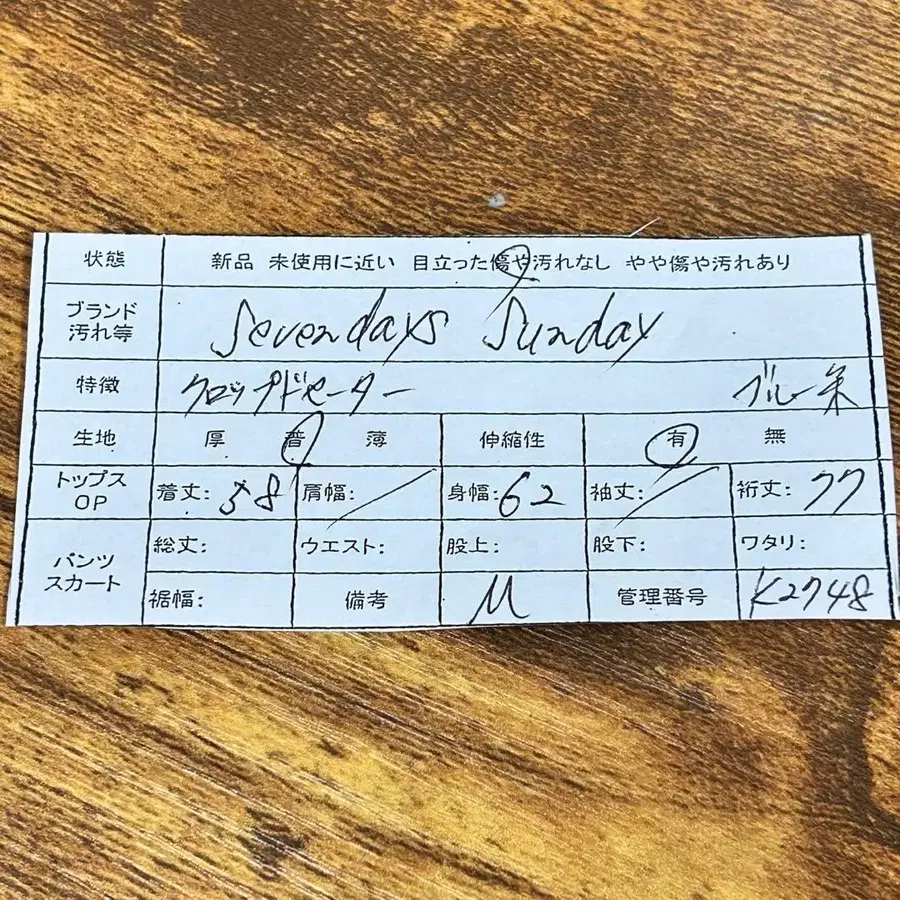 状態 新品 未使用に近い 目立った傷や汚れなし やや傷や汚れあり
ブランド
汚れ等 Sevendays Sunday
特徴 クロップドセーター ブルー系
生地 厚 普 薄 伸縮性 有 無
トップス
OP 着丈: 58 肩幅: / 身幅: 62 袖丈: / 裄丈: 77
パンツ
スカート 総丈: ウエスト: 股上: 股下: ワタリ:
裾幅: 備考 M 管理番号 K2748